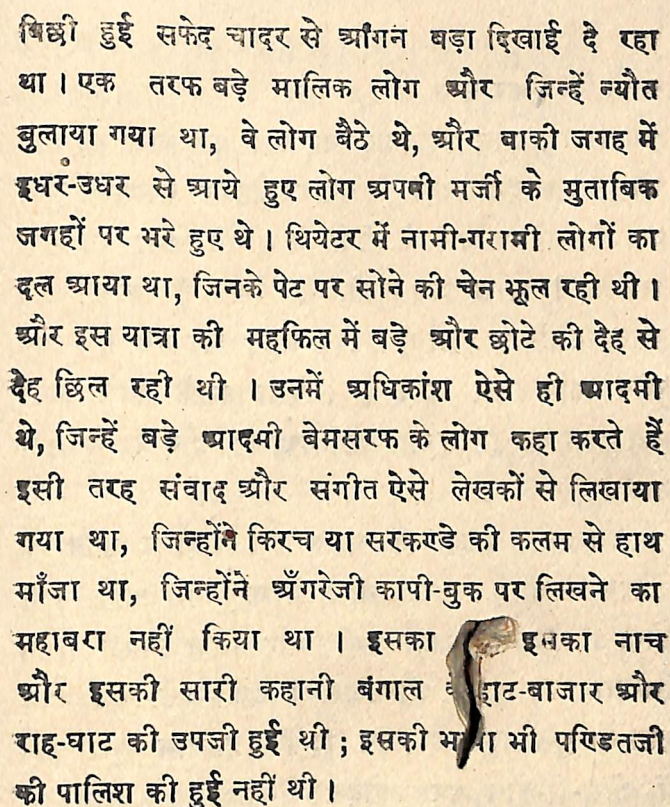 बिछी हुई सफेद चादर से आँगन बड़ा दिखाई दे रहा
था । एक तरफ बड़े मालिक लोग और जिन्हें न्यौत
बुलाया गया था, वे लोग बैठे थे, और बाकी जगह में
इधर-उधर से आये हुए लोग अपनी मर्जी के मुताबिक
जगहों पर भरे हुए थे । थियेटर में नामी-गरामी लोगों का
दल आया था, जिनके पेट पर सोने की चेन झूल रही थी ।
और इस यात्रा की महफिल में बड़े और छोटे की देह से
देह छिल रही थी । उनमें अधिकांश ऐसे ही आदमी
थे, जिन्हें बड़े आदमी बेमसरफ के लोग कहा करते हैं
इसी तरह संवाद और संगीत ऐसे लेखकों से लिखाया
गया था, जिन्होंने किरच या सरकण्डे की कलम से हाथ
माँजा था, जिन्होंने अँगरेजी कापी-बुक पर लिखने का
महाबरा नहीं किया था । इसका इसका नाच
और इसकी सारी कहानी बंगाल हाट-बाजार और
राह-घाट की उपजी हुई थी ; इसकी भी पण्डितजी
की पालिश की हुई नहीं थी ।